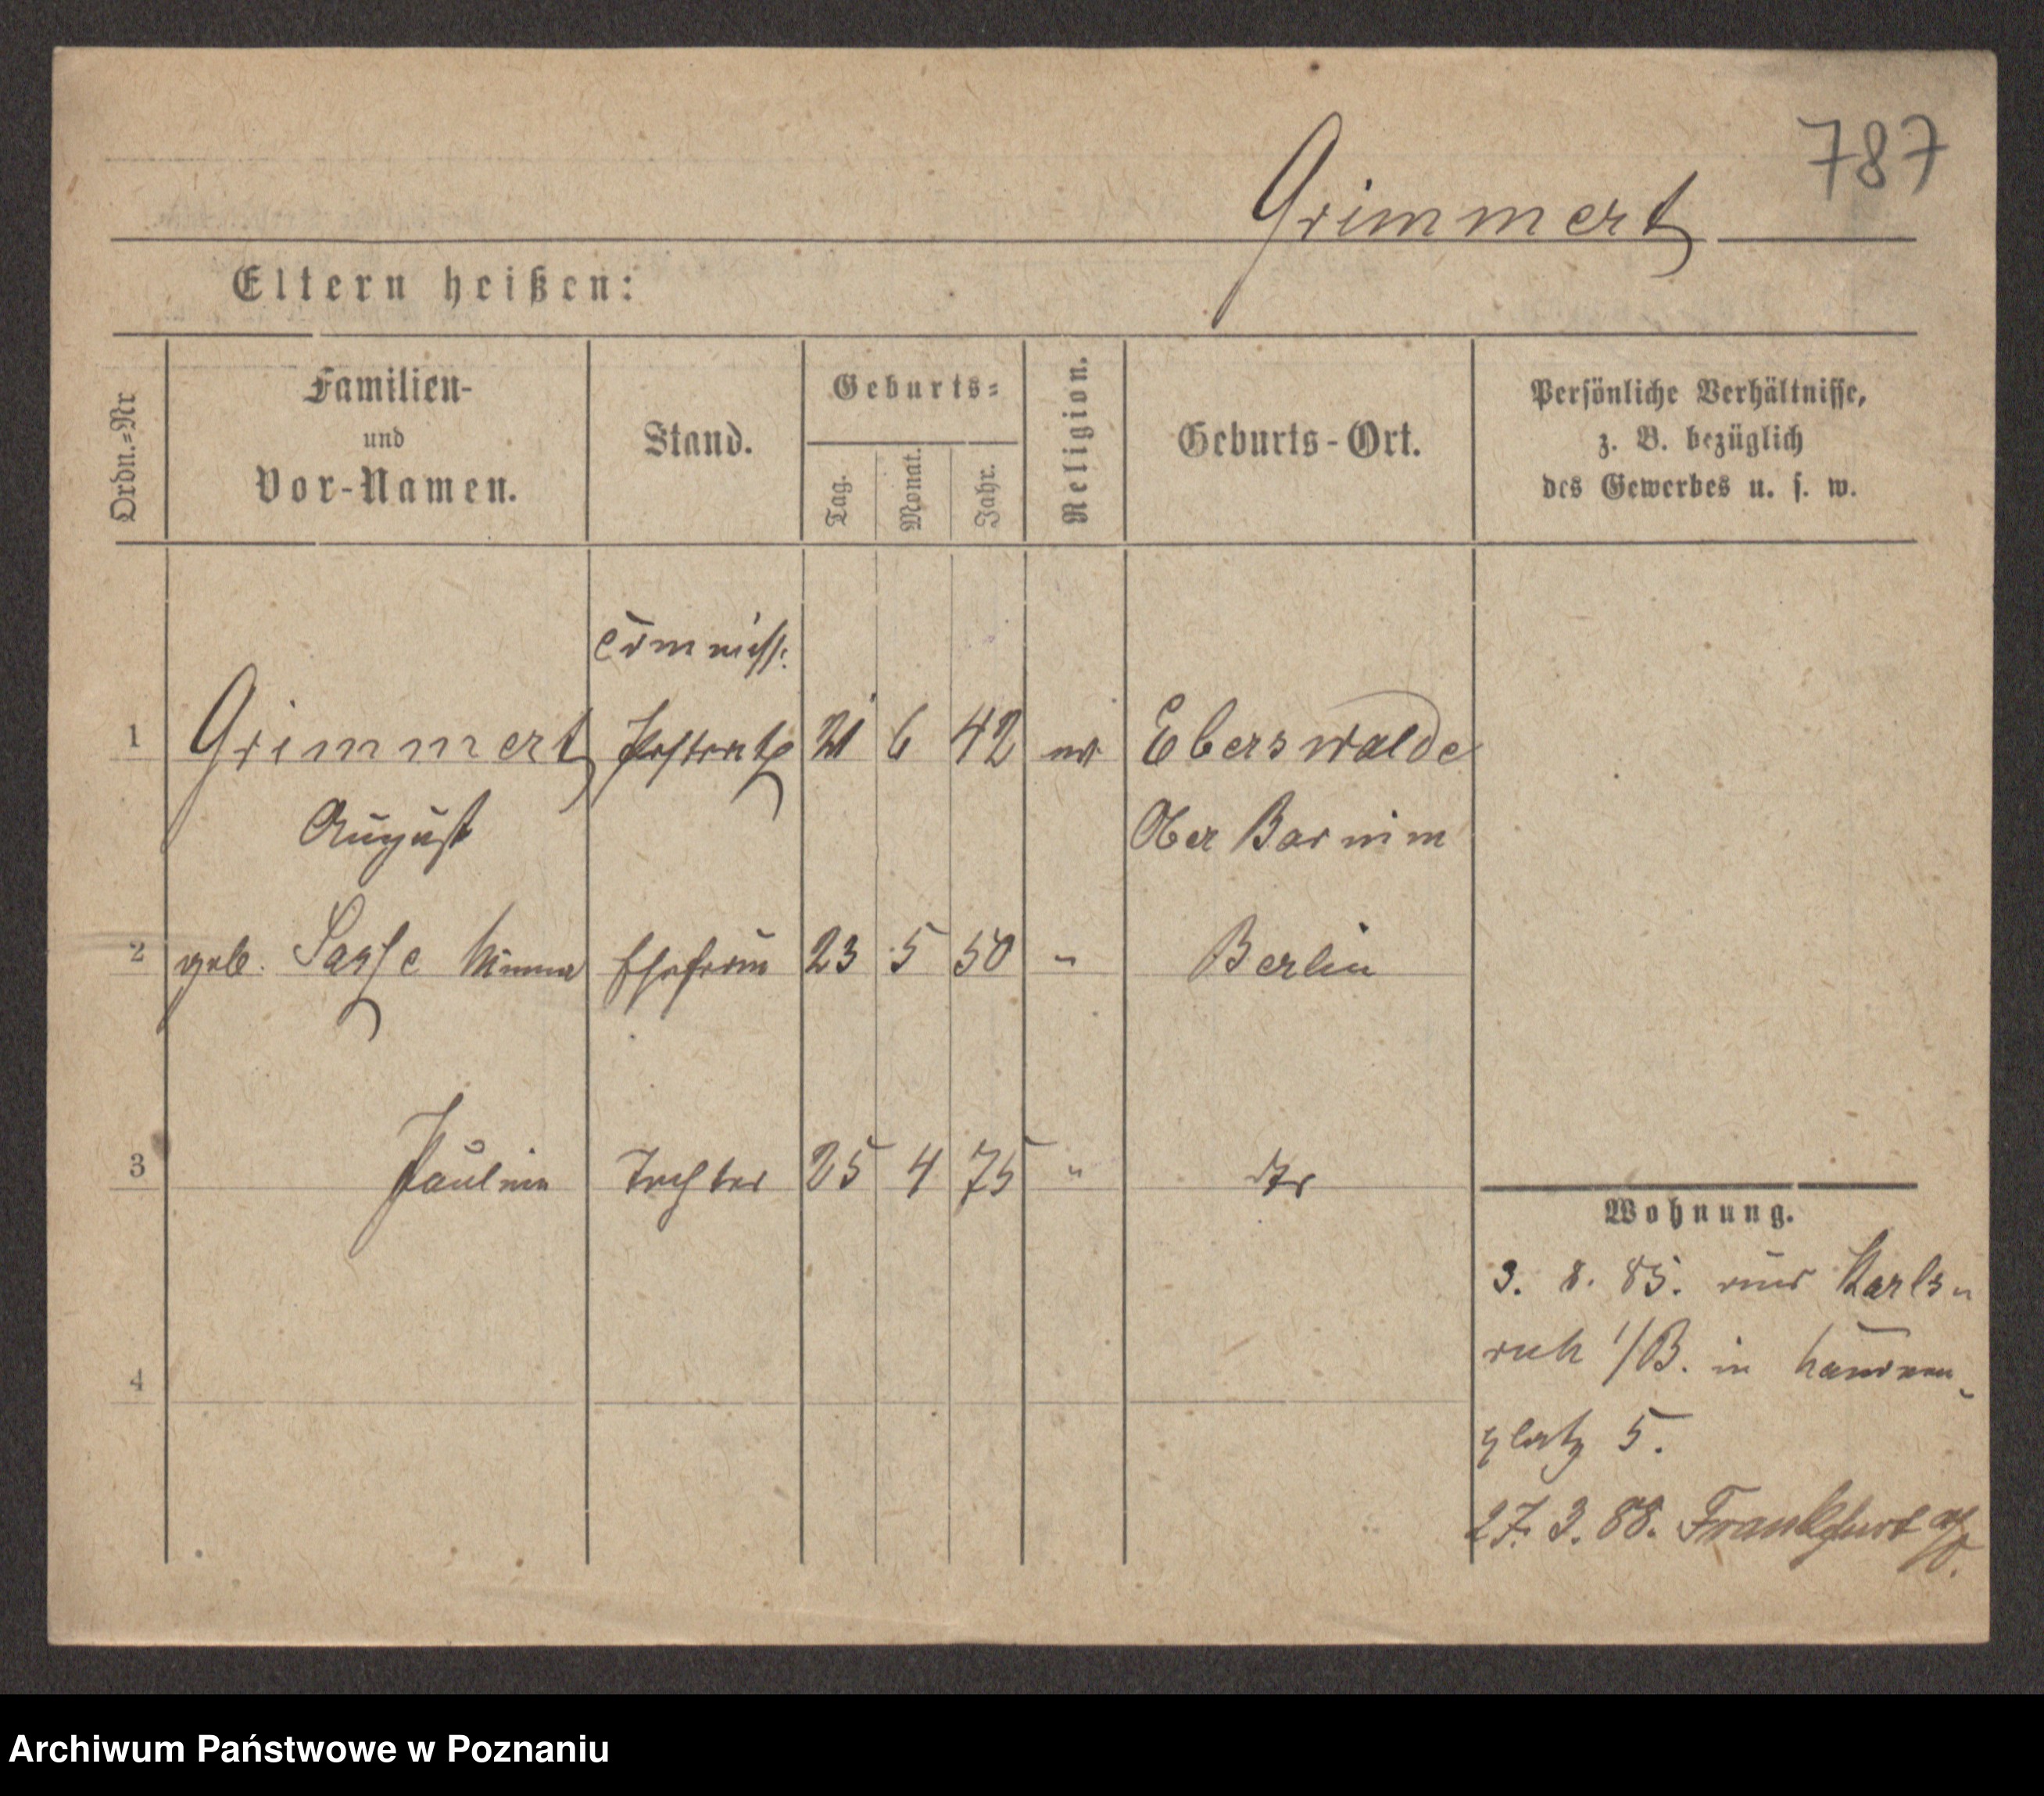 787
Grimmert
Eltern heißen:
Ordn.=Nr
Familien-
und
Vor-Namen.
Stand.
Geburts=
Tag.
Monat.
Jahr.
Religion.
Geburts-Ort.
Persönliche Verhältnisse,
z. B. bezüglich
des Gewerbes u. s. w.
commiss:
1 Grimmert Postrath 21 6 42 ev Eberswalde
August Ober Barnim
2 geb. Sasse Ehefrau 23 5 50 " Berlin
3 Pauline Tochter 25 4 75 " do
Wohnung.
3. 8. 85. aus Karls-
ruh i/B. in
4
platz 5.
27. 3. 88. Frankfurt a/O.
Archiwum Państwowe w Poznaniu